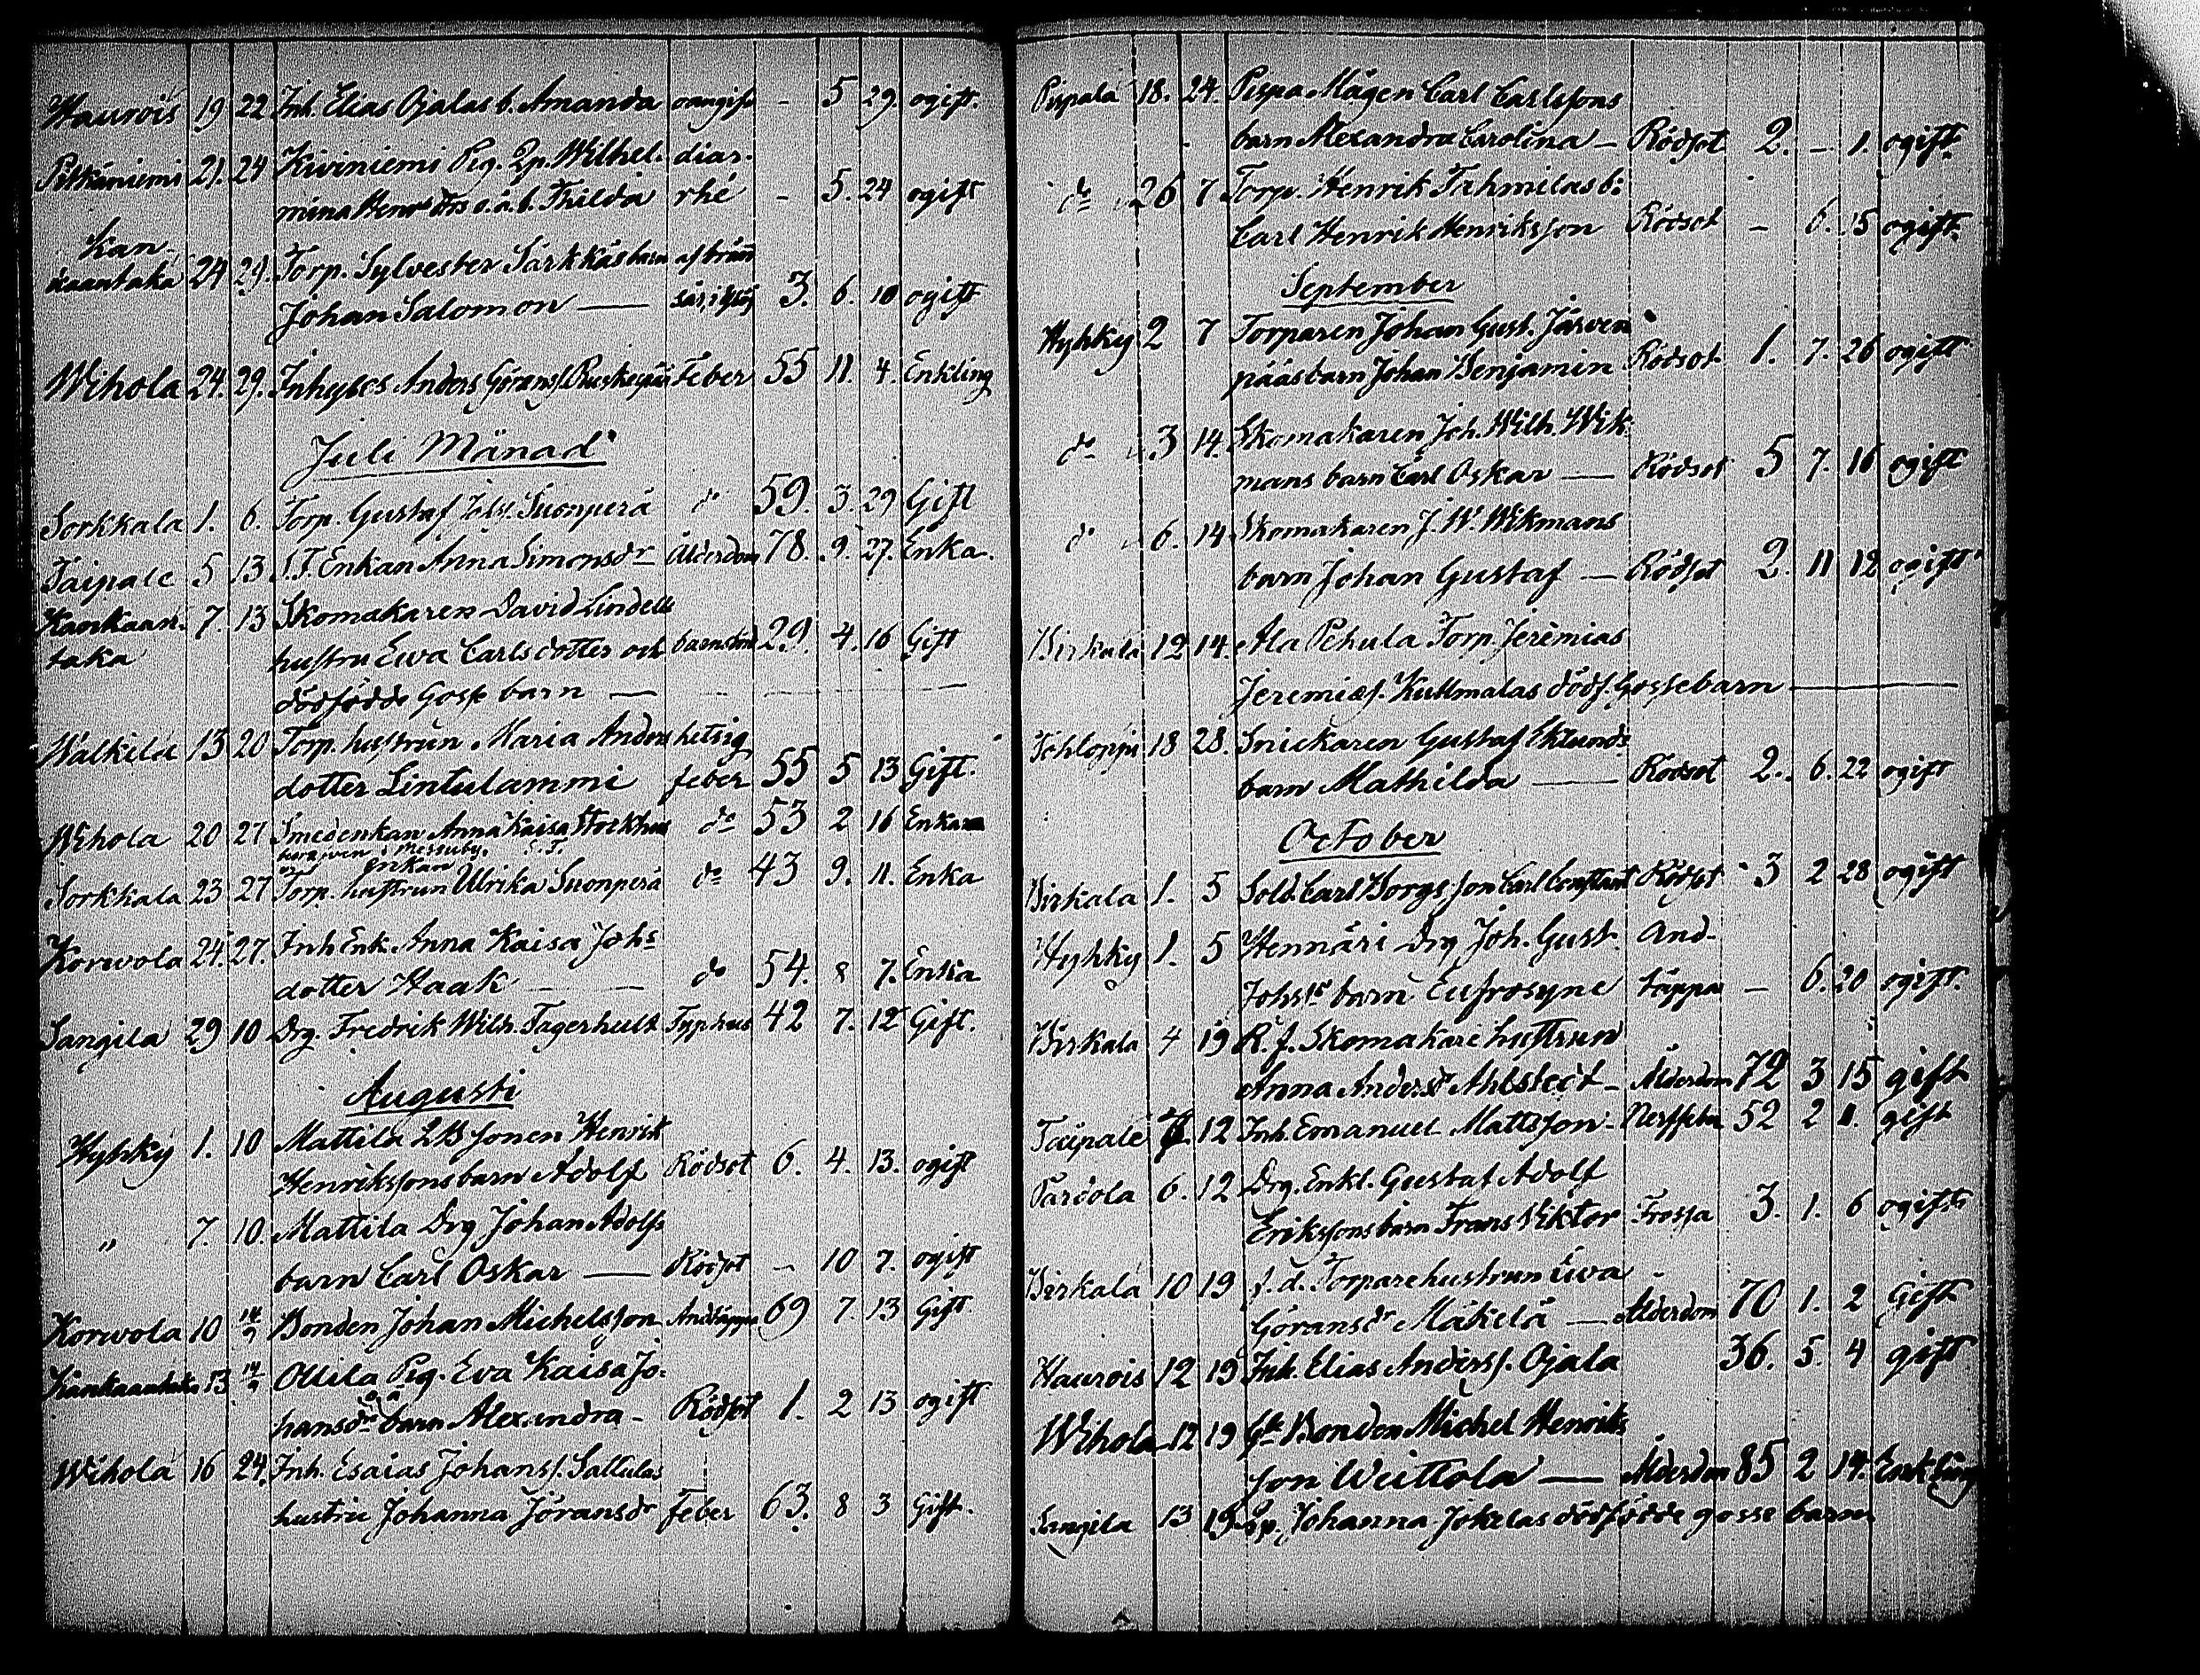 Haurois 19 22 Inh. Elias Ojalas b. Amanda oangifv - 5 29. ogift.
Pitkäniemi 21. 24 Kiviniemi Pig. Qp. Wilhel- diar-
mina Henrs drs o.ä.b. Thilda rhé - 5. 24 ogift
Kan-
kaantaka 24 29. Torp. Sylvester Särkkäs barn
Johan Salomon — 3. 6. 10 ogift
Wihola 24. 29. Inhyses Anders Göransf. Feber 55 11. 4. Enkling
Juli Månad
Sorkkala 1. 6. Torp. Gustaf Johs. Suonperä do 59. 3. 29 Gift
Taipale 5 13 S.T. Enkan Anna Simonsdr — Ålderdom 78. 9. 27. Enka.
Kankaan- 7. 13 Skomakaren David Lindells
taka hustru Ewa Carlsdotter och barnsbörd 29. 4. 16 Gift
dödfödde Gosse barn —
Walkila 13 20 Torp. hustrun Maria Anders hetsig
dotter Lintulammi feber 55 5 13 Gift.
Wihola 20 27 Smedenkan Anna Kaisa Stockhus do 53 2 16 Enka
Messuby. S.T.
enkan
Sorkkala 23 27 Torp. hustrun Ulrika Suonperä do 43 9. 11. Enka
Korwola 24. 27. Inh Enk. Anna Kaisa Johs
dotter Haak — do 54. 8 7. Enka
Sangila 29 10 Drg. Fredrik Wilh. Tagerhult Typhus 42 7. 12 Gift.
Augusti
Hyhky 1. 10 Mattila LBSonen Henrik
Henrikssons barn Adolf Rödsot 6. 4. 13. ogift
" 7. 10. Mattila Drg Johan Adolfs
barn Carl Oskar — Rödsot - 10 7. ogift
Korwola 10 14/9 Bonden Johan Michelsson Andtäppa 69 7. 13 Gift
Kankaantaka 13 14/9 Ollila Pig. Eva Kaisa Jo-
hansdr oä barn Alexandra - Rödsot 1. 2 13 ogift
Wihola 16 24. Inh. Esaias Johanss. Sallulas
hustru Johanna Jöransdr feber 63. 8 3 Gift.
Pispala 18. 24. Pispa Mågen Carl Carlssons
barn Alexandra Carolina — Rödsot 2. - 1. ogift.
do 26 7 Torp. Henrik Tahmilas b:
Carl Henrik Henriksson Rödsot - 6. 15 ogift.
September
Hyhky 2 7 Torparen Johan Gust. Järven
pääs barn Johan Benjamin Rödsot 1. 7. 26 ogift
do 3 14. Skomakaren Joh. Wilh. Wik-
mans barn Carl Oskar — Rödsot 5 7. 16 ogift
do 6. 14 Skomakaren J. W. Wikmans
barn Johan Gustaf — Rödsot 2. 11 12 ogift
Birkala 12 14. Ala Pehula Torp. Jeremias
Jeremiæs. Kullmalas dödf. Gossebarn —
Tohloppi 18 28. Snickaren Gustaf Eklunds
barn Mathilda — Rödsot 2. 6. 22 ogift
October
Birkala 1. 5 Sold. Carl Borgs son Carl Constant Rödsot 3 2 28 ogift
Hyhky 1. 5 Hennäri Drg Joh. Gust. And-
Johss barn Eufrosyne täppa — 6. 20 ogift.
Birkala 4 19 R.f. Skomakare hustrun
Anna Andersdr Ahlstedt — Ålderdom 72 3 15 gift
Taipale 12 Inh. Emanuel Mattsson - Nerffeber 52 2 11. gift
Pardola 6. 12 Drg. Enkl. Gustaf Adolf
Erikssons barn Frans Wiktor Frossa 3. 1. 6 ogift
Birkala 10 19 f.d. Torpare hustrun Ewa
Göransdr Mäkelä — Ålderdom 70 1. 2 Gift
Haurois 12 19 Inh. Elias Anderss. Ojala 36. 5. 4 gift
Wihola 12 19 Gle Bonden Michel Henriks
son Weittola — Ålderdom 85 2 14. Enkling
Sangila 13 19 Qp. Johanna Jokelas dödfödde gosse barn